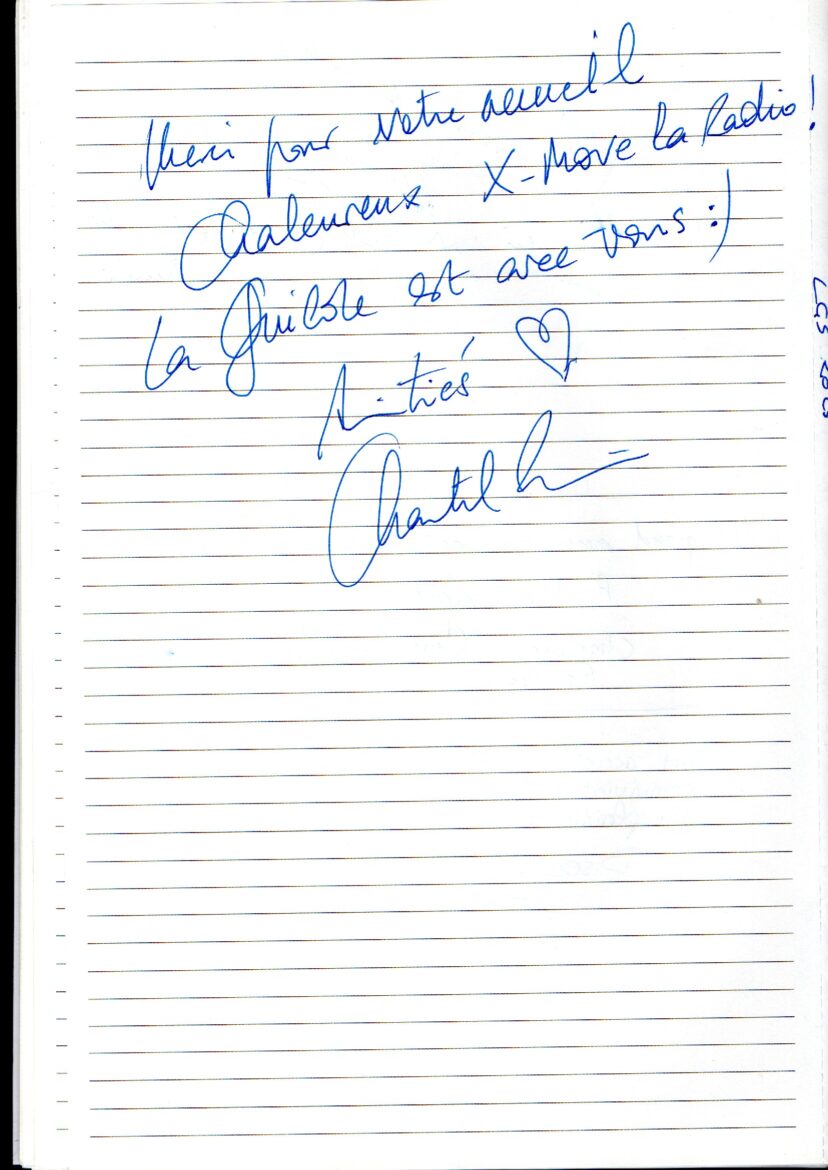 Merci pour votre accueil
Chaleureux X-Move la Radio!
La est avec vous :)
Amitiés
Chantal